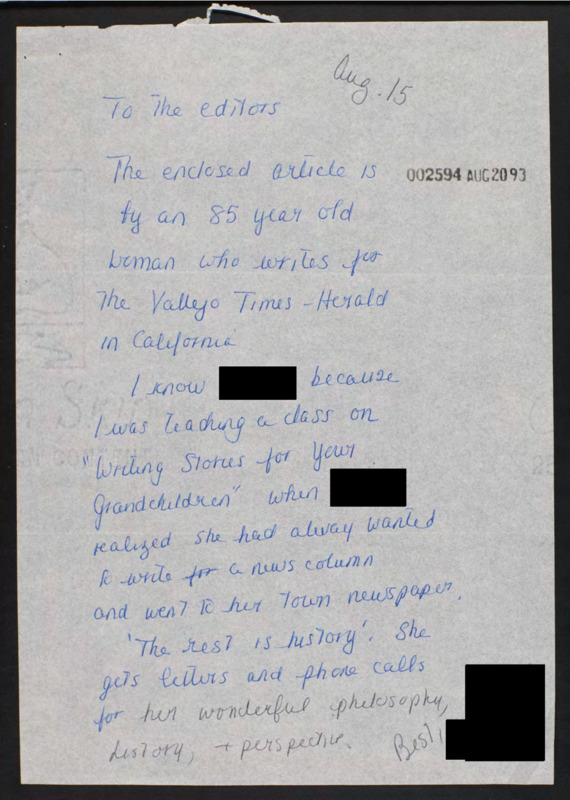 Aug. 15
To The editors
The enclosed article is
002594 AUG 20 93
by an 85 year old
woman who writes for
The Vallejo Times-Herald
in California
I know because
I was teaching a class on
"Writing Stories for Your
Grandchildren" when
realized she had alway wanted
to write for a news column
and went to her town newspaper.
'The rest is history'. She
gets letters and phone calls
for her wonderful philosophy,
history, + perspective.
Best,